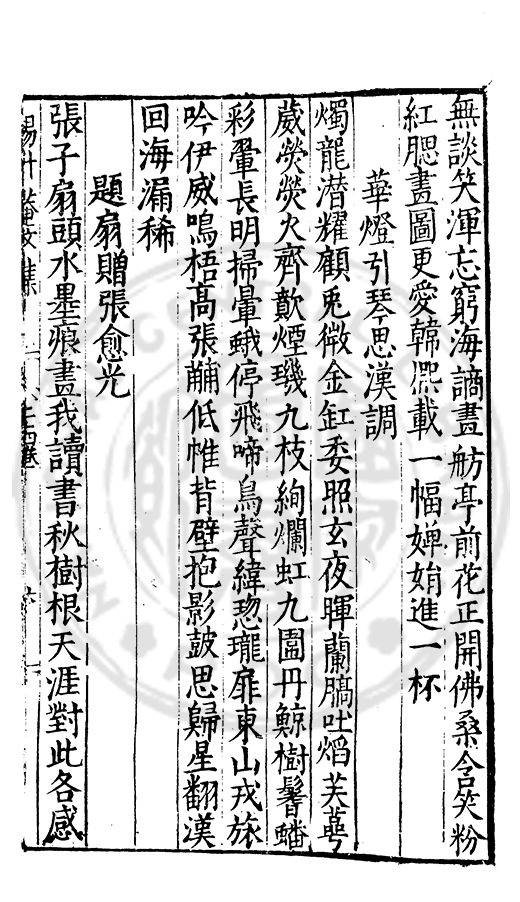 無談笑渾忘窮海謫畫舫亭前花正開佛桑含笑粉
紅腮畫圖更愛韓熙載一幅嬋娟進一杯
華燈引琴思漢調
燭龍潛耀顧兎微金缸委照玄夜暉蘭膏吐熖芙蕚
葳熒熒火齊歕煙璣九枝絢爛虹九圍丹鯨樹鬐蟠
彩翬長明掃暈蛾停飛啼鳥聲緯璁瓏扉東山戎旅
吟伊威鳴梧高張黼低帷背壁抱影鼓思歸星翻漢
回海漏稀
題扇贈張愈光
張子扇頭水墨痕畫我讀書秋樹根天涯對此各感